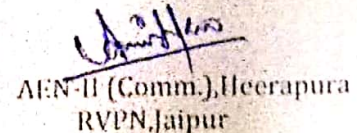 AEN-II (Comm.),Heerapura
RVPN,Jaipur